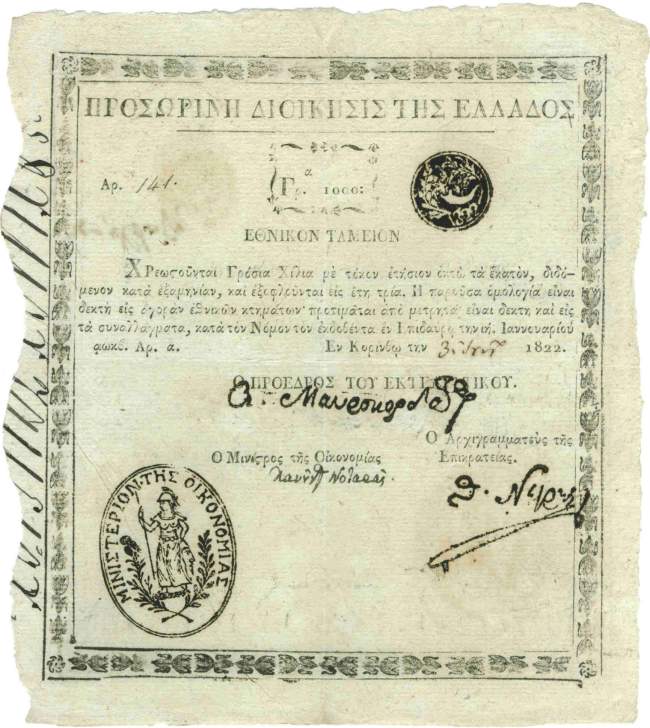 ΠΡΟΣΩΡΙΝΗ ΔΙΟΙΚΗΣΙΣ ΤΗΣ ΕΛΛΑΔΟΣ
Αρ. 141.
α
Γρ. 1000:
ΕΘΝΙΚΟΝ ΤΑΜΕΙΟΝ
ΧΡεωστοῦνται Γρόσια Χίλια μὲ τόκον ἐτήσιον ὀκτὼ τὰ ἑκατὸν, διδό-
μενον κατὰ ἑξαμηνίαν, καὶ ἐξοφλοῦνται εἰς ἔτη τρία. Η παροῦσα ὁμολογία εἶναι
δεκτὴ εἰς ἀγορὰν ἐθνικῶν κτημάτων· προτιμᾶται ἀπὸ μετρητὰ· εἶναι δεκτὴ καὶ εἰς
τὰ συναλλάγματα, κατὰ τὸν Νόμον τὸν ἐκδοθέντα ἐν Επιδαύρῳ τὴν ιή. Ιαννουαρίου
αωκβ. Αρ. α. Εν Κορίνθῳ την 3 1822.
Ο ΠΡΟΕΔΡΟΣ ΤΟΥ ΕΚΤΕΛΕΣΤΙΚΟΥ.
Α. Μαυροκορδατος
Ο Αρχιγραμματεὺς τῆς
Επικρατείας.
Ο Μινίστρος τῆς Οἰκονομίας
Νοταρᾶς
Θ. Νέγρης
ΜΙΝΙΣΤΕΡΙΟΝ ΤΗΣ ΟΙΚΟΝΟΜΙΑΣ